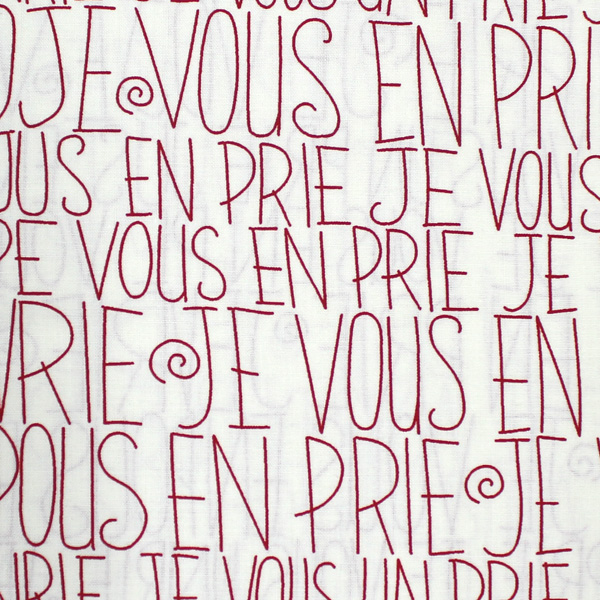 JE VOUS EN PRI
US EN PRIE JE VOUS
E VOUS EN PRIE JE
RIE JE VOUS EN
OUS EN PRIE JE
RIE JE VOUS UN PRIE